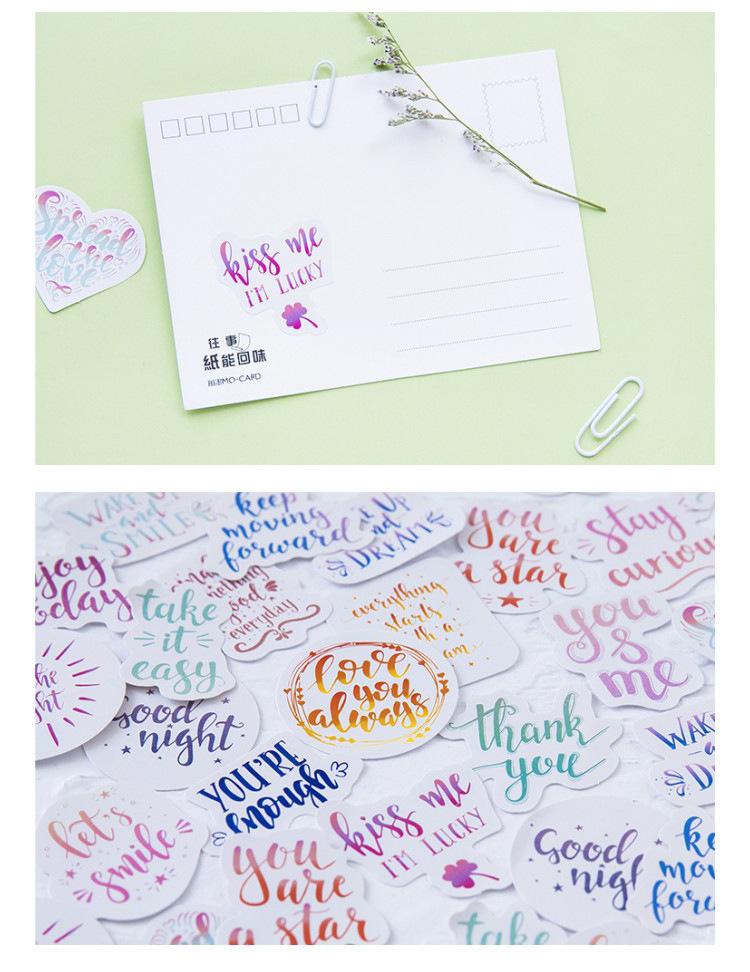 Spread
the
love
kiss me
I'M LUCKY
往事
紙能回味
MO-CARD
WAKE UP
and
SMILE
keep
moving
forward
Up
nd
DREAM
you
are
a star
Stay
curious
njoy
oday
take
it
easy
nothing
good
everyday
everything
starts
th a
am
you
&
me
he
ght
love
you
always
good
night
thank
you
WAK
a
DR
YOU'RE
enough
let's
smile
kiss me
I'M LUCKY
Good
nigh
ke
mov
forw
you
are
a star
take